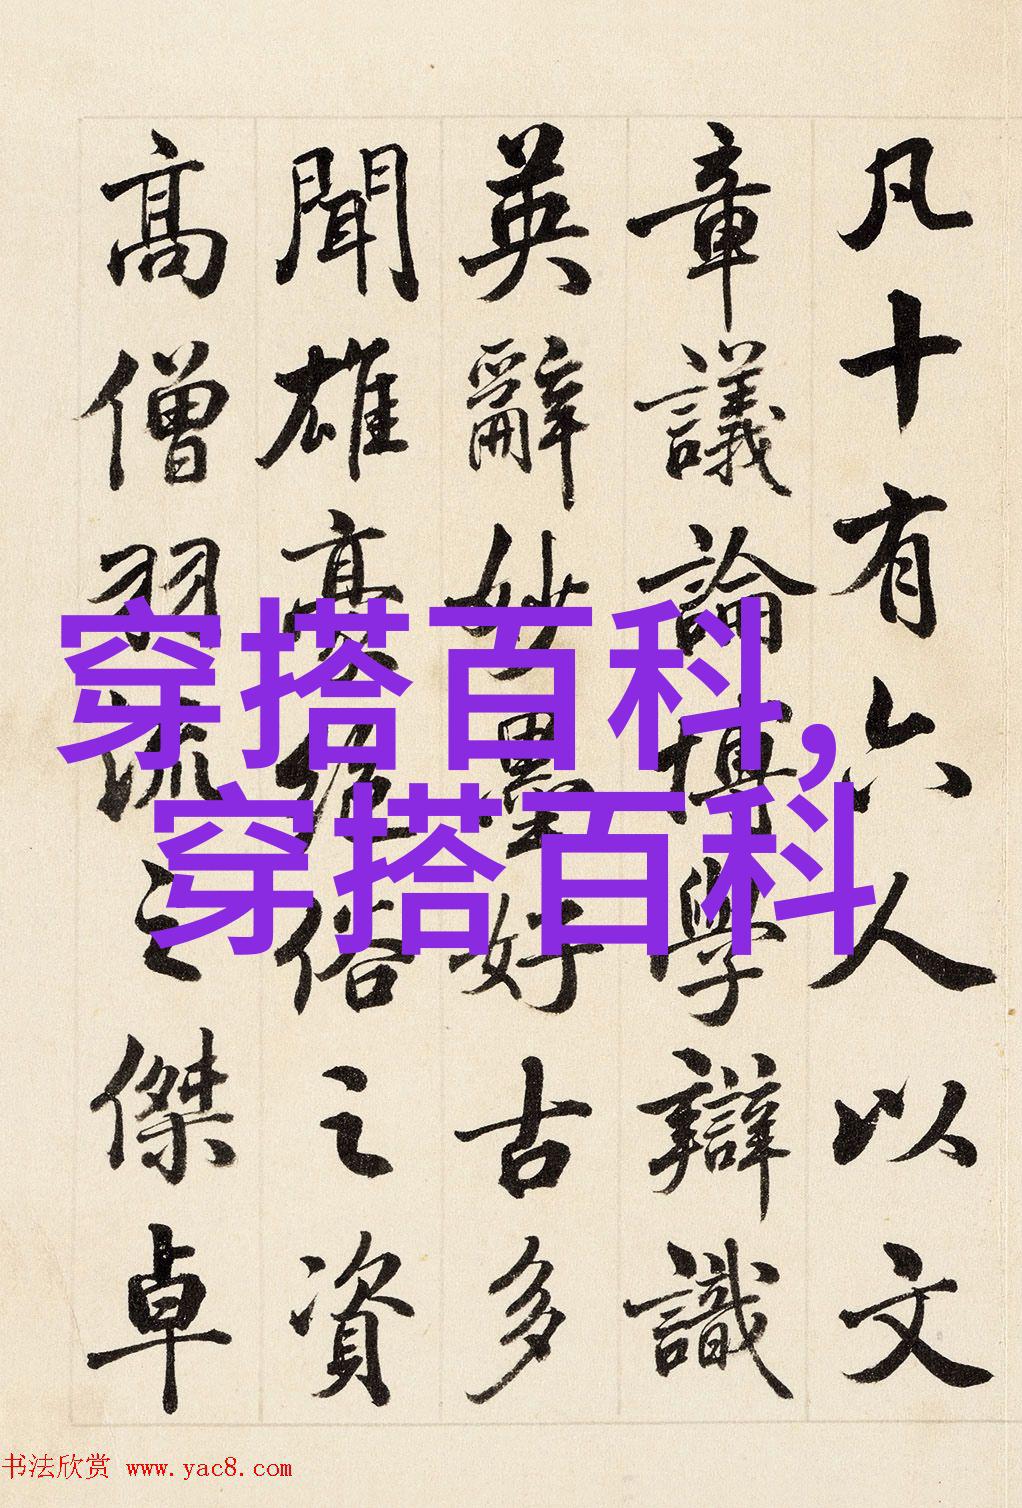 凡十有六人以文
章議論博學辯識
英辭妙墨好古多
聞雄豪絕俗之資
高僧羽流之傑卓
穿搭百科,
穿搭百科
书法欣赏 www.yac8.com